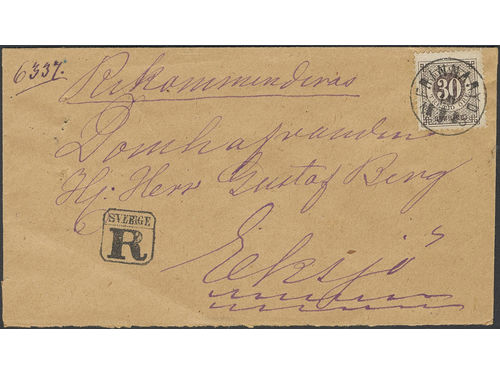 6337.
Rekommenderas
30
Domhafvanden
Hr. Herr Gustaf Berg
SVERIGE
R
Eksjö